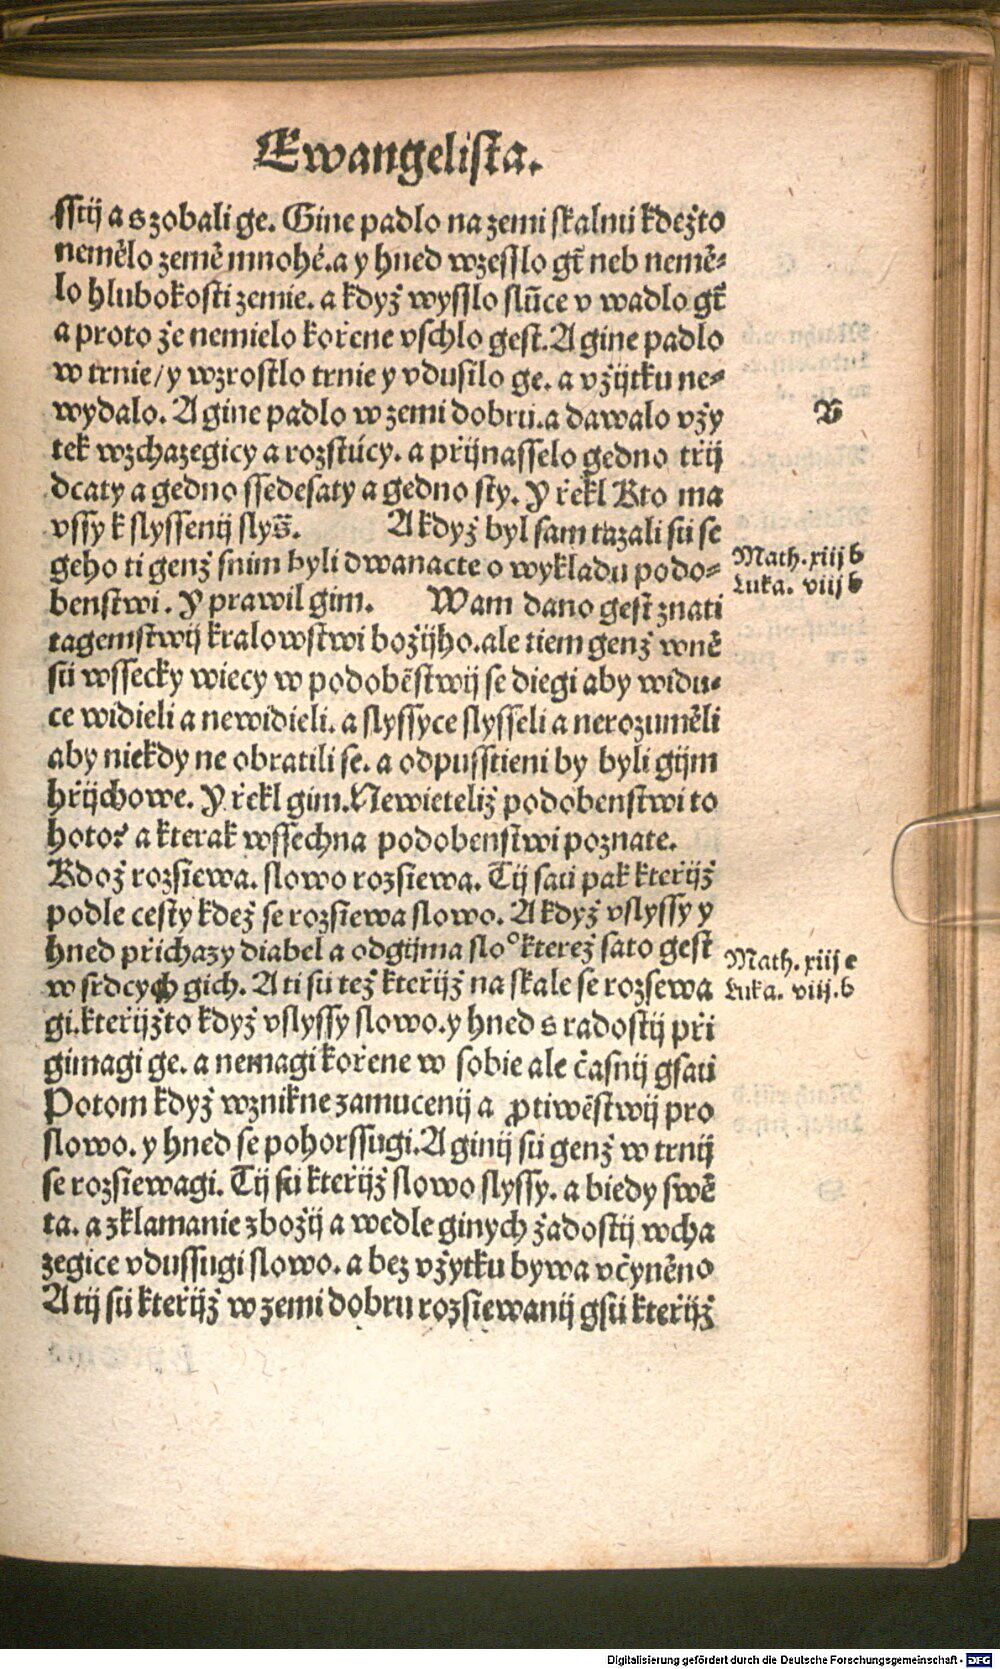 Ewangelista.
sstij a szobali ge. Gine padlo na zemi skalmi kdežto
nemělo země mnohé. a y hned wzesslo gt̃ neb nemě-
lo hlubokosti zemie. a když wysslo slũce v wadlo gt̃
a proto že nemielo kořene vschlo gest. A gine padlo
w trnie / y wzrostlo trnie y vdusilo ge. a vžijtku ne-
wydalo. A gine padlo w zemi dobru. a dawalo vžy
B
tek wzchazegicy a rozstúcy. a přijnasselo gedno třij
dcaty a gedno ssedesaty a gedno sty. Y řekl Kto ma
vssy k slyssenij slyš. A když byl sam tazali sú se
geho ti genž snim byli dwanacte o wykladu podo-
Math. xiij b
benstwi. Y prawil gim. Wam dano gest znati
Luka. viij b
tagemstwij kralowstwi božijho. ale tiem genž wně
sú wssecky wiecy w podobẽstwij se diegi aby widu-
ce widieli a newidieli. a slyssyce slysseli a nerozuměli
aby niekdy ne obratili se. a odpusstieni by byli gijm
hřijchowe. Y řekl gim. Newieteliž podobenstwi to
hoto? a kterak wssechna podobenstwi poznate.
Kdož rozsiewa. slowo rozsiewa. Tij sau pak kteřijž
podle cesty kdež se rozsiewa slowo. A když vslyssy y
hned přichazy diabel a odgijma slo° kterež sato gest
Math. xiij c
w srdcych gich. A ti sú tež kteřijž na skale se rozsewa
Luka. viij. b
gi. kteřijžto když vslyssy slowo. y hned s radostij při
gimagi ge. a nemagi kořene w sobie ale časnij gsau
Potom když wznikne zamucenij a ꝓtiwẽstwij pro
slowo. y hned se pohorssugi. A ginij sú genž w trnij
se rozsiewagi. Tij sú kteřijž slowo slyssy. a biedy swě
ta. a zklamanie zbožij a wedle ginych žadostij wcha
zegice vdussugi slowo. a bez vžytku bywa včyněno
A tij sú kteřijž w zemi dobru rozsiewanij gsú kteřijž
Digitalisierung gefördert durch die Deutsche Forschungsgemeinschaft - DFG